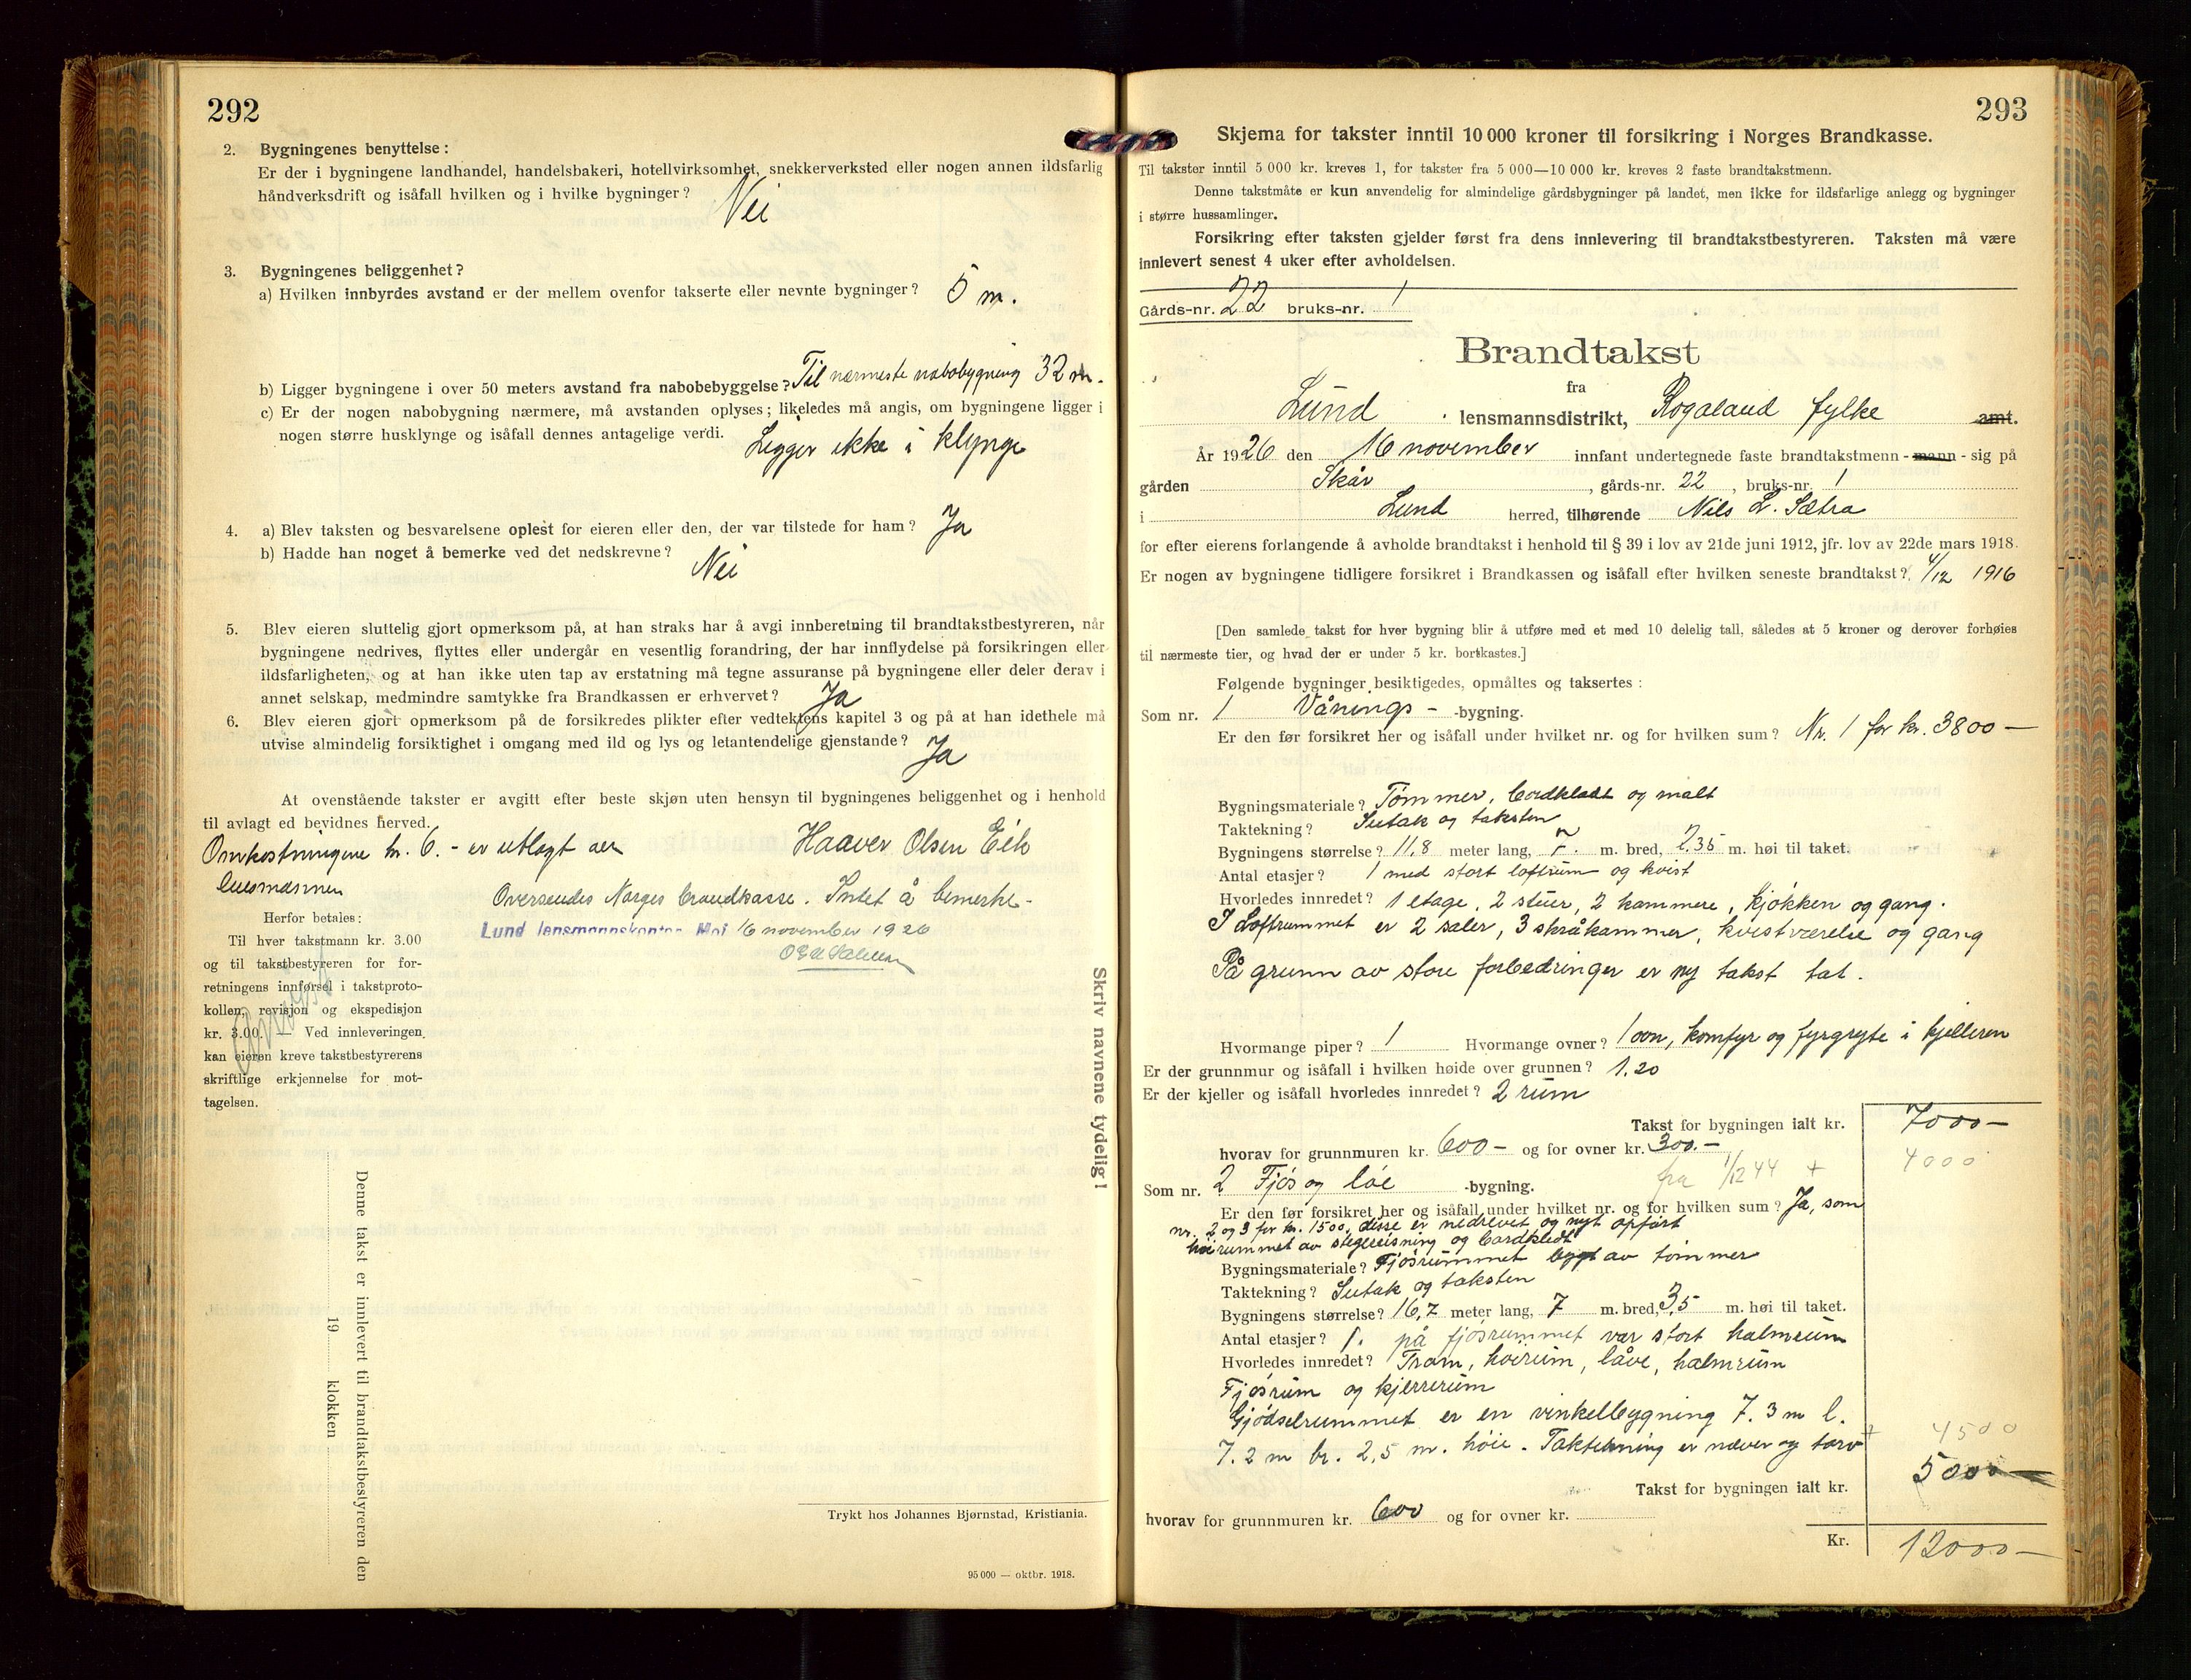 292
2. Bygningenes benyttelse:
Er der i bygningene landhandel, handelsbakeri, hotellvirksomhet, snekkerverksted eller nogen annen ildsfarlig
håndverksdrift og isåfall hvilken og i hvilke bygninger? Nei
3. Bygningenes beliggenhet?
a) Hvilken innbyrdes avstand er der mellem ovenfor takserte eller nevnte bygninger? 5 m.
b) Ligger bygningene i over 50 meters avstand fra nabobebyggelse? Til nærmeste nabobygning 32 m.
c) Er der nogen nabobygning nærmere, må avstanden oplyses; likeledes må angis, om bygningene ligger i
nogen større husklynge og isåfall dennes antagelige verdi. Ligger ikke i klynge
4. a) Blev taksten og besvarelsene oplest for eieren eller den, der var tilstede for ham? Ja
b) Hadde han noget å bemerke ved det nedskrevne? Nei
5. Blev eieren sluttelig gjort opmerksom på, at han straks har å avgi innberetning til brandtakstbestyreren, når
bygningene nedrives, flyttes eller undergår en vesentlig forandring, der har innflydelse på forsikringen eller
ildsfarligheten, og at han ikke uten tap av erstatning må tegne assuranse på bygningene eller deler derav i
annet selskap, medmindre samtykke fra Brandkassen er erhvervet? Ja
6. Blev eieren gjort opmerksom på de forsikredes plikter efter vedtektens kapitel 3 og på at han idethele må
utvise almindelig forsiktighet i omgang med ild og lys og letantendelige gjenstande? Ja
At ovenstående takster er avgitt efter beste skjøn uten hensyn til bygningenes beliggenhet og i henhold
til avlagt ed bevidnes herved.
Omkostningene kr. 6.- er utlagt av Haaver Olsen Eik
lensmannen
Oversendes Norges brandkasse. Intet å bemerke.
Lund lensmannskontor Moi 16 november 1926
Herfor betales:
Til hver takstmann kr. 3.00
og til takstbestyreren for for-
retningens innførsel i takstproto-
kollen, revisjon og ekspedisjon
kr. 3.00. — Ved innleveringen
kan eieren kreve takstbestyrerens
skriftlige erkjennelse for mot-
tagelsen.
Skriv navnene tydelig!
Denne takst er innlevert til brandtakstbestyreren den
19 klokken
Trykt hos Johannes Bjørnstad, Kristiania.
95 000 — oktbr. 1918.
293
Skjema for takster inntil 10 000 kroner til forsikring i Norges Brandkasse.
Til takster inntil 5 000 kr. kreves 1, for takster fra 5 000—10 000 kr. kreves 2 faste brandtakstmenn.
Denne takstmåte er kun anvendelig for almindelige gårdsbygninger på landet, men ikke for ildsfarlige anlegg og bygninger
i større hussamlinger.
Forsikring efter taksten gjelder først fra dens innlevering til brandtakstbestyreren. Taksten må være
innlevert senest 4 uker efter avholdelsen.
Gårds-nr. 22 bruks-nr. 1
Brandtakst
fra
Lund lensmannsdistrikt, Rogaland fylke amt.
År 1926 den 16 november innfant undertegnede faste brandtakstmenn - mann - sig på
gården Skår, gårds-nr. 22, bruks-nr. 1
i Lund herred, tilhørende Nils L. Sætra
for efter eierens forlangende å avholde brandtakst i henhold til § 39 i lov av 21de juni 1912, jfr. lov av 22de mars 1918.
Er nogen av bygningene tidligere forsikret i Brandkassen og isåfall efter hvilken seneste brandtakst? 4/12 1916
[Den samlede takst for hver bygning blir å utføre med et med 10 delelig tall, således at 5 kroner og derover forhøies
til nærmeste tier, og hvad der er under 5 kr. bortkastes.]
Følgende bygninger besiktigedes, opmåltes og taksertes:
Som nr. 1 Vånings- -bygning.
Er den før forsikret her og isåfall under hvilket nr. og for hvilken sum? Nr. 1 for kr. 3800 —
Bygningsmateriale? Tømmer, bordkledt og malt
Taktekning? Sutak og taksten
Bygningens størrelse? 11,8 meter lang, 7. m. bred, 2.35 m. høi til taket.
Antal etasjer? 1 med stort loftrum og kvist
Hvorledes innredet? 1 etage, 2 stuer, 2 kammere, kjøkken og gang.
I Loftrummet er 2 saler, 3 skråkammer, kvistværelse og gang
På grunn av store forbedringer er ny takst tat.
Hvormange piper? 1 Hvormange ovner? 1 ovn, komfyr og fyrgryte i kjelleren
Er der grunnmur og isåfall i hvilken høide over grunnen? 1.20
Er der kjeller og isåfall hvorledes innredet? 2 rum
Takst for bygningen ialt kr. 7000 —
hvorav for grunnmuren kr. 600 — og for ovner kr. 300. — 4000
fra 1/12 44 +
Som nr. 2 Fjøs og løe -bygning.
Er den før forsikret her og isåfall under hvilket nr. og for hvilken sum? Ja, som
nr. 2 og 3 for kr. 1500, disse er nedrevet og nyt opført
høirummet av stegereisning og bordkledt
Bygningsmateriale? Fjøsrummet bygt av tømmer
Taktekning? Sutak og taksten
Bygningens størrelse? 16,7 meter lang, 7 m. bred, 3,5 m. høi til taket.
Antal etasjer? 1. på fjøsrummet var stort halmrum
Hvorledes innredet? Tram, høirum, låve, halmrum
Fjøsrum og kjerrerum
Gjødselrummet er en vinkelbygning 7.3 m l.
7.2 m br. 2,5 m. høie. Taktekning er næver og torv +
4500
5000 —
Takst for bygningen ialt kr.
hvorav for grunnmuren kr. 600 og for ovner kr.
Kr. 12000 —